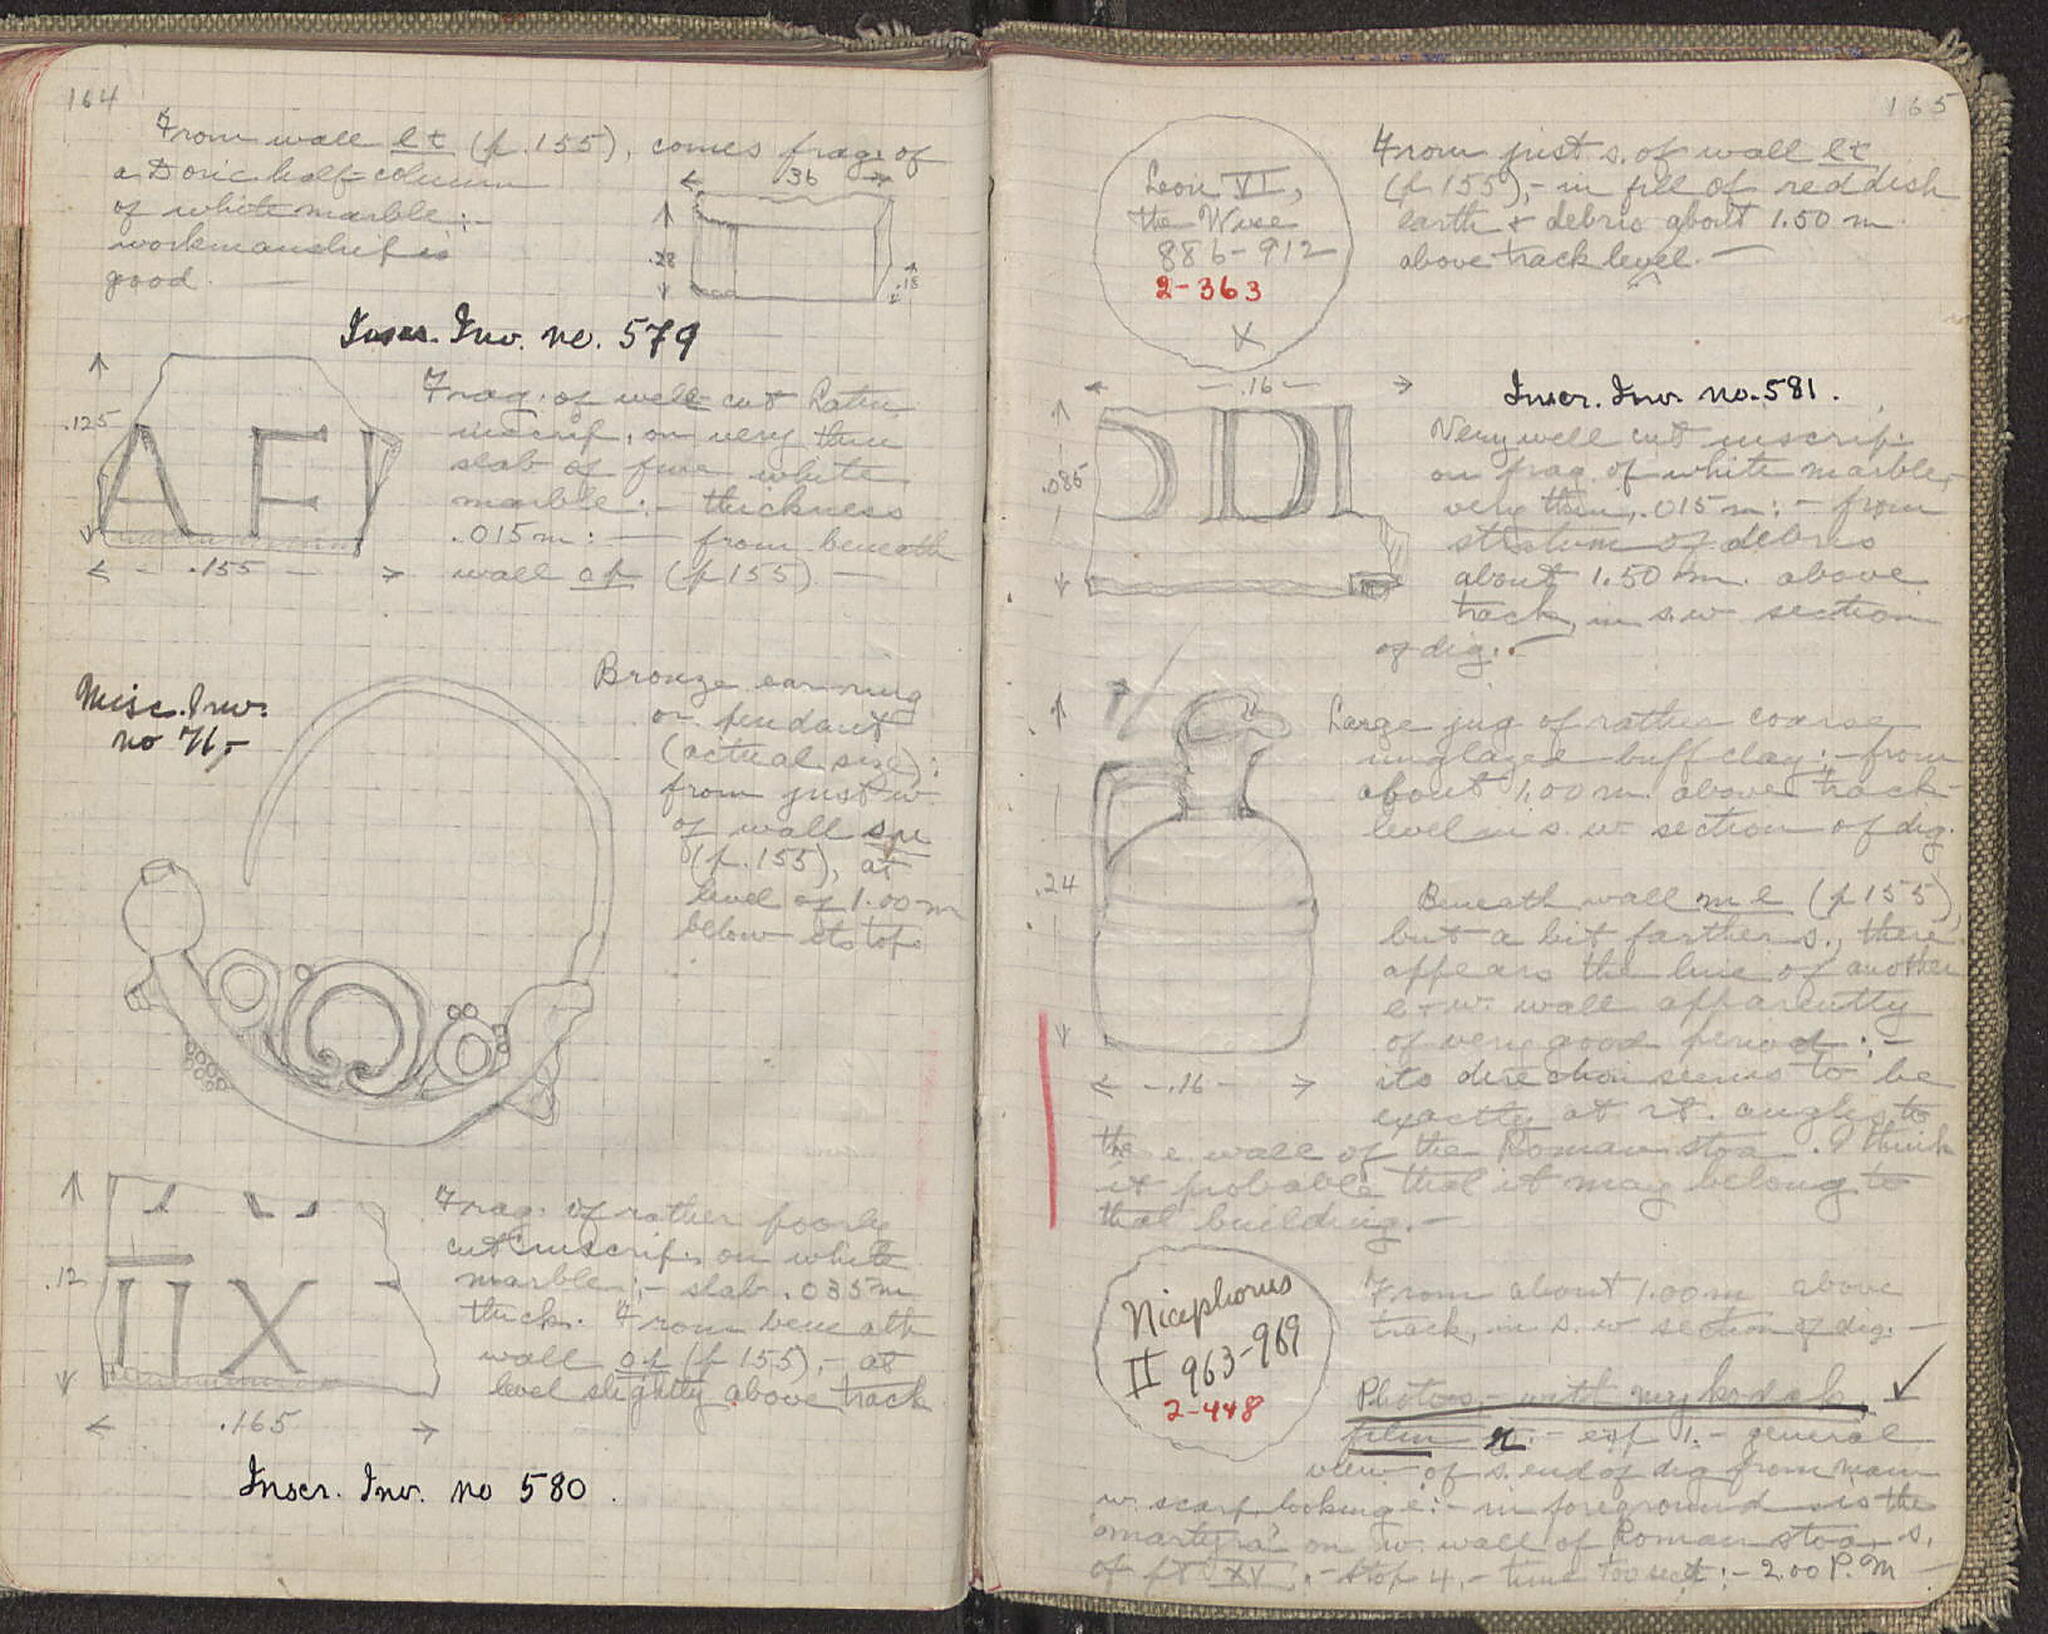 164
From wall et (p. 155), comes frag. of
a Doric half-column
of white marble :-
workmanship is
good. —
.36
.28
.18
Inscr. Inv. no. 579
.125
A E
.155
Frag. of well cut Latin
inscrip. on very thin
slab of fine white
marble :- thickness
.015 m : — from beneath
wall op (p 155) —
Misc. Inv.
no 71,-
Bronze earring
or pendant
(actual size):
from just w.
of wall su
(p. 155), at
level of 1.00 m
below its top.
.12
X
.165
Frag. of rather poorly
cut inscrip. on white
marble :- slab .035 m
thick. From beneath
wall op (p 155),- at
level slightly above track
Inscr. Inv. no 580 .
165
Leon VI,
the Wise
886-912
2-363
X
From just s. of wall et
(p 155),- in fill of reddish
earth + debris about 1.50 m.
above track level. —
.16
.085
DDI
Inscr. Inv. no. 581 .
Very well cut inscrip.
on frag. of white marble,
very thin, .015 m :- from
stratum of debris
about 1.50 m. above
track, in s.w section
of dig. -
.24
.16
Large jug of rather coarse
unglazed buff clay :- from
about 1.00 m. above track
level in s. w section of dig.
Beneath wall me (p 155),
but a bit farther s., there
appears the line of another
e-w. wall apparently
of very good period :-
its direction seems to be
exactly at rt. angles to
the e. wall of the Roman stoa. I think
it probable that it may belong to
that building. -
Nicephorus
II 963-969
2-448
From about 1.00 m above
track, in s. w section of dig. —
Photos,- with my kodak, ✓
film :- exp 1.- general
view of s. end of dig from main
w. scarp, looking e :- in foreground is the
"martyra" on w. wall of Roman stoa, s.
of pt XV.- stop 4,- time :- 2.00 P.M